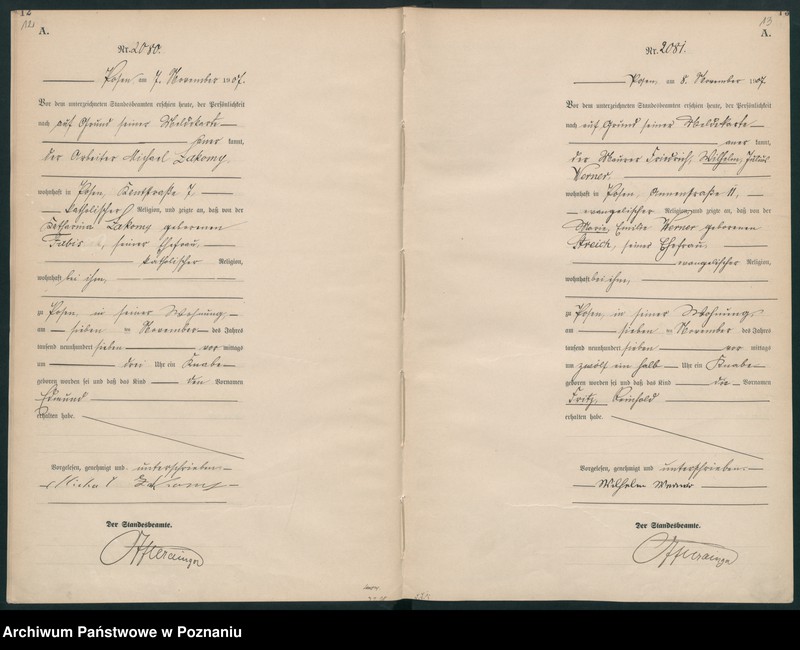 12
A.
Nr. 2080.
Posen am 7. November 1907.
Vor dem unterzeichneten Standesbeamten erschien heute, der Persönlichkeit
nach auf Grund seiner Meldekarte
kannt,
der Arbeiter Michael Lakomy
wohnhaft in Posen, 7
katholischer Religion, und zeigte an, daß von der
Katharina Lakomy geborenen
Fabis, seiner Ehefrau,
katholischer Religion,
wohnhaft bei ihm,
zu Posen, in seiner Wohnung
am sieben ten November des Jahres
tausend neunhundert sieben vor mittags
um drei Uhr ein Knabe
geboren worden sei und daß das Kind den Vornamen
Edmund
erhalten habe.
Vorgelesen, genehmigt und unterschrieben
Michal Lakomy
Der Standesbeamte.
13
A.
Nr. 2081.
Posen, am 8. November 1907.
Vor dem unterzeichneten Standesbeamten erschien heute, der Persönlichkeit
nach auf Grund seiner Meldekarte
kannt,
der Maurer Friedrich, Wilhelm, Julius
Werner,
wohnhaft in Posen, Annenstraße 11,
evangelischer Religion, und zeigte an, daß von der
Marie, Emilie Werner geborenen
Streich, seiner Ehefrau,
evangelischer Religion,
wohnhaft bei ihm,
zu Posen, in seiner Wohnung,
am sieben ten November des Jahres
tausend neunhundert sieben vor mittags
um zwölf ein halb Uhr ein Knabe
geboren worden sei und daß das Kind die Vornamen
Fritz, Reinhold
erhalten habe.
Vorgelesen, genehmigt und unterschrieben
Wilhelm Werner
Der Standesbeamte.
Archiwum Państwowe w Poznaniu